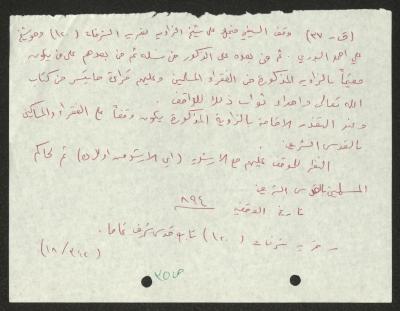 (ق - ٣٧) وقف الشيخ على شيخ الزاوية بقرية الشرفات (١٤) وهو شيخ
علي احمد البدري . ثم من بعده على الذكور من نسله ثم من بعدهم على من يكون
مقيماً بالزاوية المذكورة من الفقراء المسلمين وعليهم قراءة ما تيسر من كتاب
الله تعالى واهداء ثواب ذلك للواقف .
وعند التعذر الاقامة بالزاوية المذكورة يكون وقفاً على الفقراء والمساكين
بالقدس الشريف
النظر للوقف عليهم مع الارشد (اي الارشد من اولاده) ثم لحاكم
المسلمين بالقدس الشريف
تاريخ الوقفية ٨٩٤
قرية شرفات (١٤) تابع قدس شريف تماما .
(١٨/٣١٤)
ص ٢٥